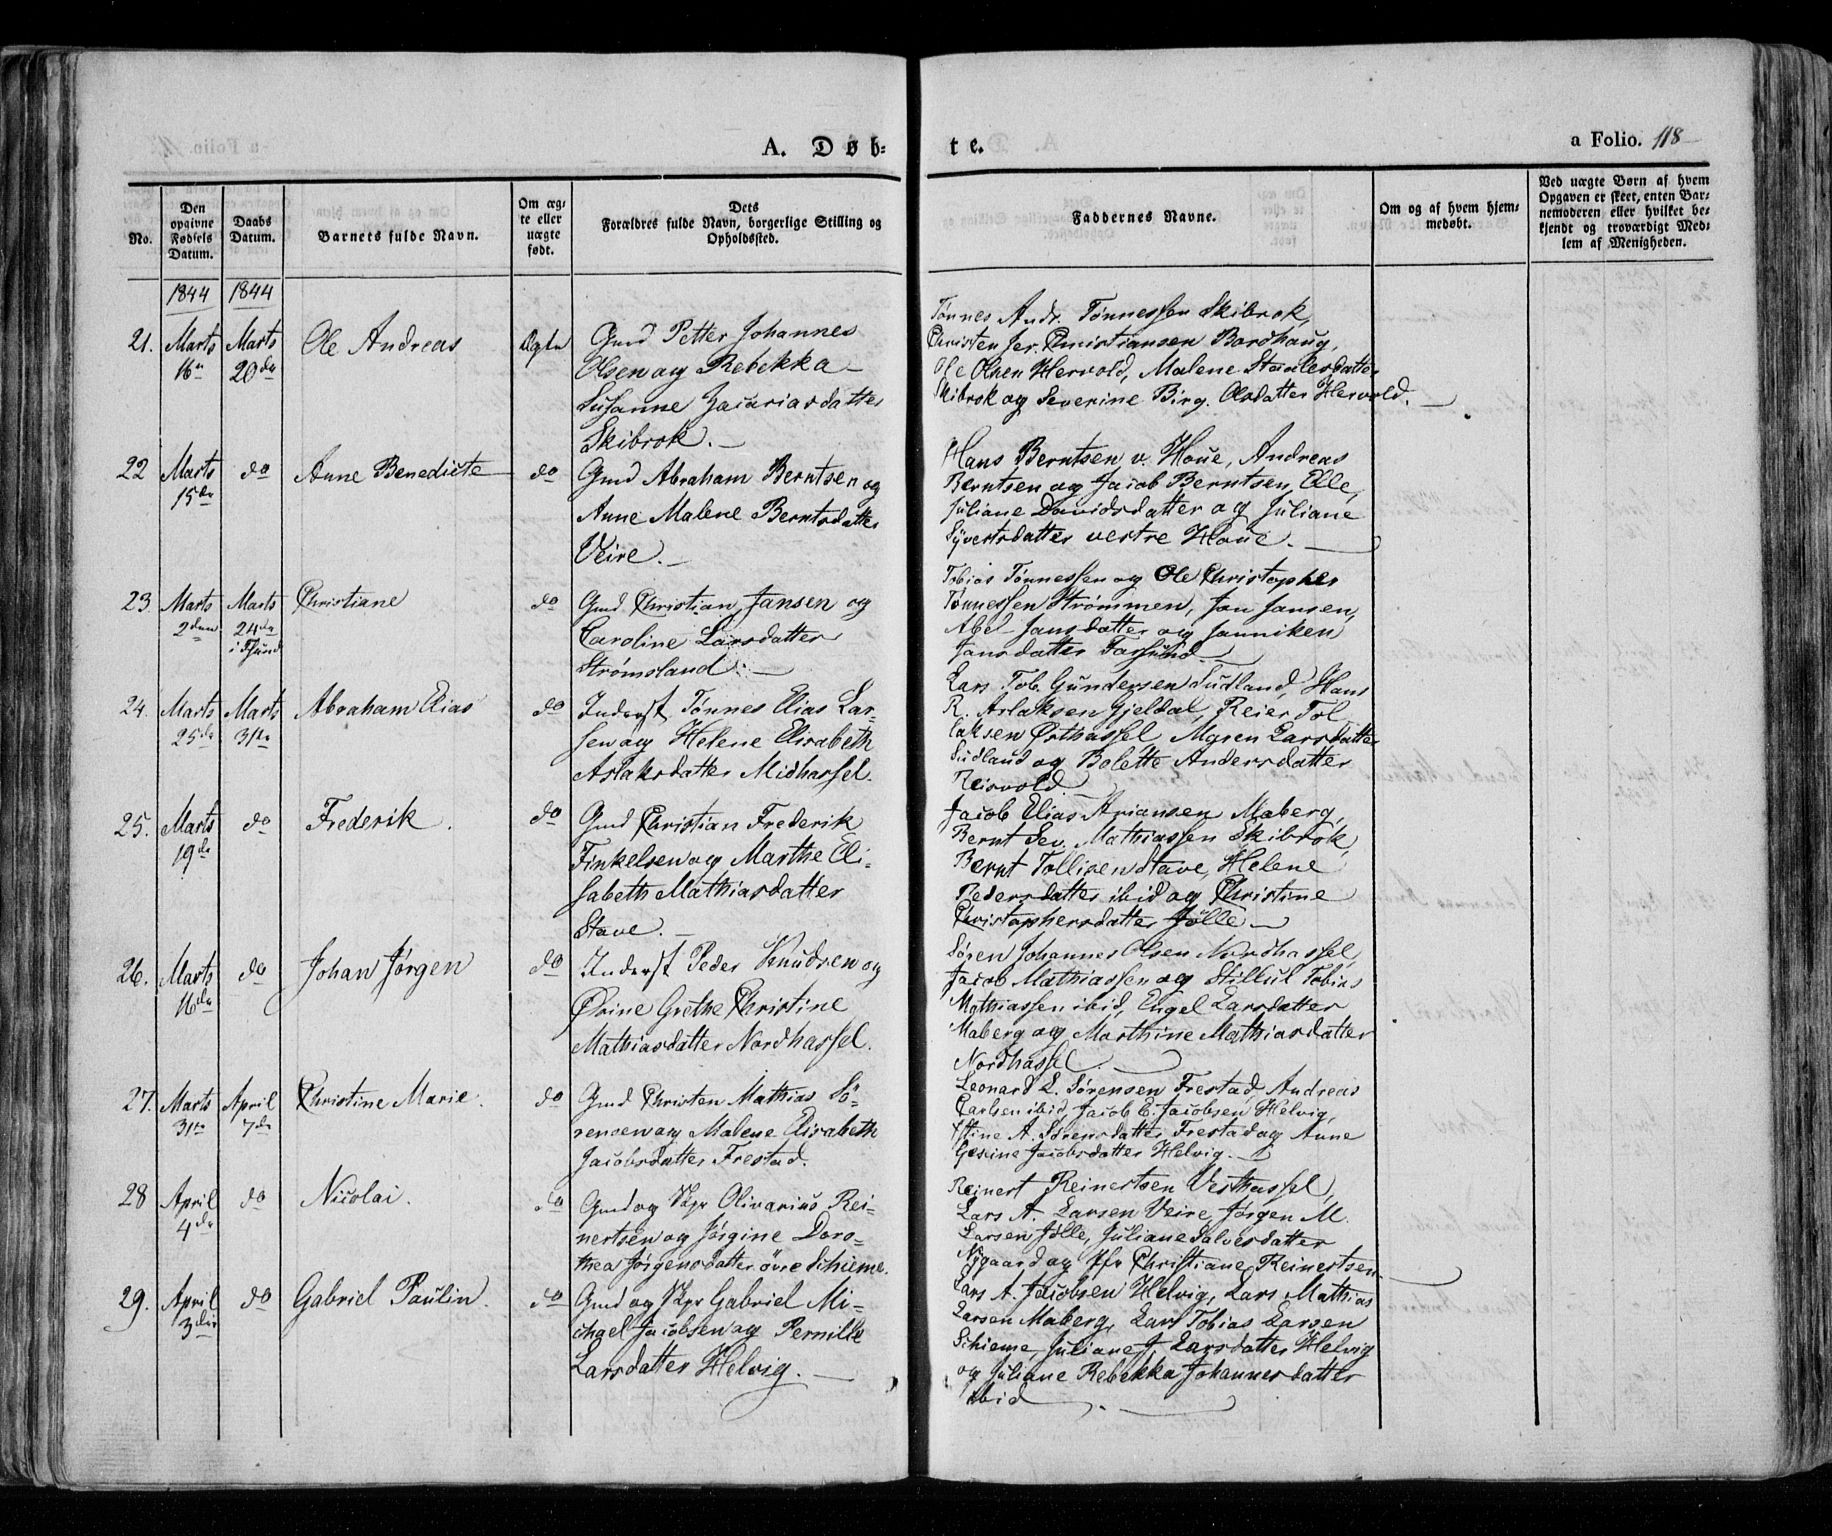 A. Døb-
te.
a Folio. 118
No.
Den opgivne Fødsels Datum.
Daabs Datum.
Barnets fulde Navn.
Om ægte eller uægte født.
Dets Forældres fulde Navn, borgerlige Stilling og Opholdssted.
Faddernes Navne.
Om og af hvem hjemmedøbt.
Ved uægte Børn af hvem Opgaven er skeet, enten Barnemoderen eller hvilket bekjendt og troværdigt Medlem af Menigheden.
1844 1844
21. Marts 16de Marts 20de Ole Andreas Ægte
Gmd Petter Johannes
Olsen og Rebekka
Susanne Zacariasdatter
Skibrok.
Tønnes Andr. Tønnessen Skibrok,
Christen Jer. Christiansen Bordhaug,
Ole Olsen Hervold, Malene Staalesdatter
Skibrok og Severine Birg. Olsdatter Hervold.
22 Marts 15de do Anne Benedicte do
Gmd Abraham Berntsen og
Anne Malene Berntsdatter
Veire.
Hans Berntsen v. Houe, Andreas
Berntsen og Jacob Berntsen Elle,
Juliane Davidsdatter og Juliane
Syvertsdatter vestre Houe.
23 Marts 2den Marts 24de i Fsund Christiane do
Gmd Christian Jansen og
Caroline Larsdatter
Strømsland.
Tobias Tønnessen og Ole Christopher
Tønnessen Strømmen, Jan Jansen,
Abel Jansdatter og Janniken
Jansdatter Farsund.
24. Marts 25de Marts 31te Abraham Elias do
Inderst Tønnes Elias Lar-
sen og Helene Elisabeth
Aslaksdatter Midhassel.
Lars Tob. Gundersen Sudland, Hans
R. Aslaksen Gjeldal, Reier Tol
laksen Østhassel, Maren Larsdatter
Sudland og Bolette Andersdatter
Reisvold.
25. Marts 19de do Frederik. do
Gmd Christian Frederik
Finkelsen og Marthe Eli-
sabeth Mathiasdatter
Stave.
Jacob Elias Ariansen Maberg,
Bernt Sev. Mathiassen Skibrok,
Bernt Tollisen Stave, Helene
Pedersdatter ibid og Christine
Christophersdatter Jølle
26. Marts 16de do Johan Jørgen do
Inderst Peder Knudsen og
Ørine Grethe Christine
Mathiasdatter Nordhassel.
Søren Johannes Olsen Nordhassel,
Jacob Mathiassen og Tobias
Mathiassen ibid, Engel Larsdatter
Maberg og Marthine Mathiasdatter
Nordhassel.
27. Marts 31te April 7de Christine Marie. do
Gmd Christen Mathias Sö-
rensen og Malene Elisabeth
Jacobsdatter Frestad.
Leonard L. Sørensen Frestad, Andreas
Carlsen ibid, Jacob E. Jacobsen Helvig,
Stine A. Sørensdatter Frestad og Anne
Gesine Jacobsdatter Helvig.
28 April 4de do Nicolai. do
Gmd og Skpr Olivarius Rei-
nertsen og Jørgine Doro-
thea Jørgensdatter övre Schieme.
Reinert Reinertsen Vesthassel,
Lars A. Larsen Veire, Jørgen M.
Larsen Jølle, Juliane Salvesdatter
Nygaard og Christiane Reinertsen
29. April 3die do Gabriel Paulin. do
Gmd og Skpr Gabriel Mi-
chael Jacobsen og Pernille
Larsdatter Helvig.
Lars A. Jacobsen Helvig, Lars Mathias
Larsen Maberg, Lars Tobias Larsen
Schieme, Juliane J. Larsdatter Helvig
og Juliane Rebekka Johannesdatter
ibid